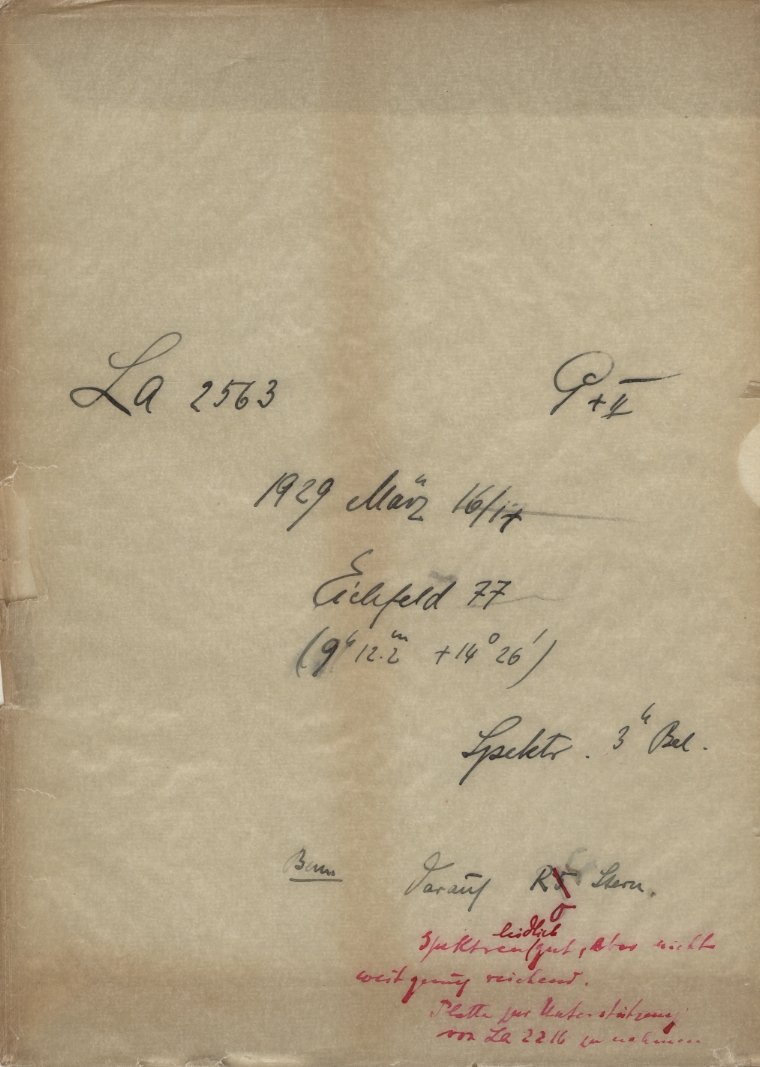 La 2563 P + II
1929 März 16/17
Eichfeld 77
(9h 12.m2 +14° 26')
Spektr. 3h Bel.
Darauf R Stern.
leidlich
Spektren gut, aber nicht
weit genug reichend.
Platte zur Unterstützung
von La 2216 zu nehmen